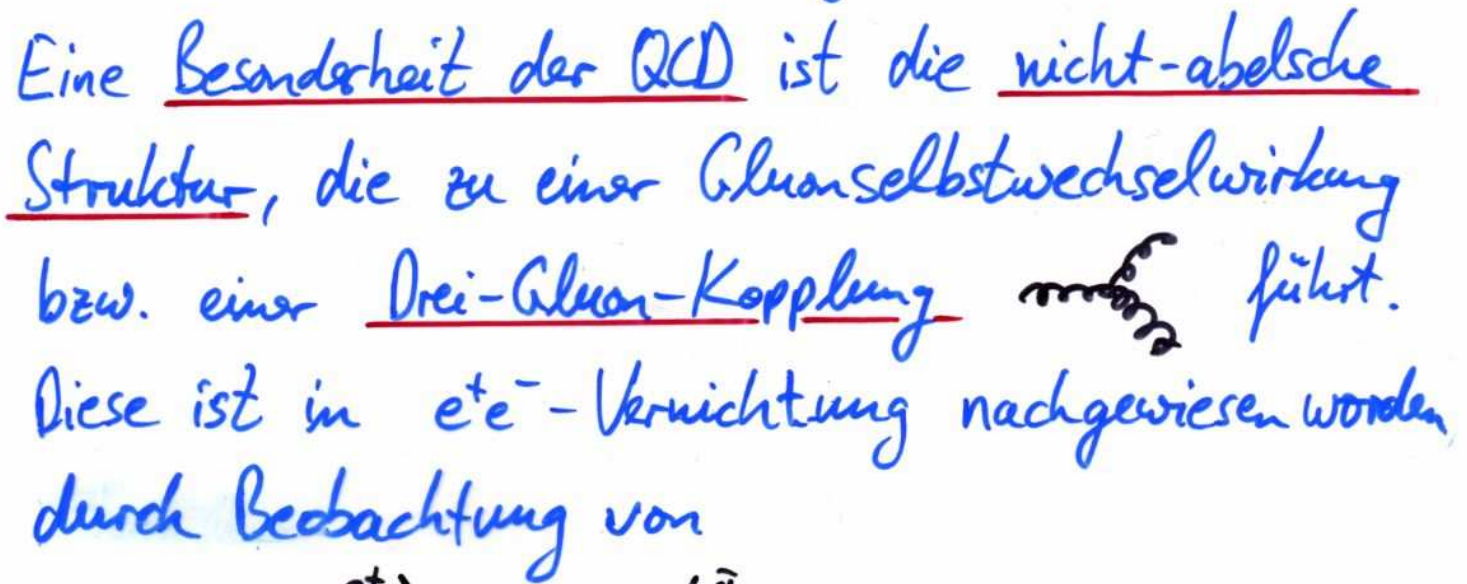 Eine Besonderheit der QCD ist die nicht-abelsche
Struktur, die zu einer Gluonselbstwechselwirkung
bzw. einer Drei-Gluon-Kopplung führt.
Diese ist in e⁺e⁻-Vernichtung nachgewiesen worden
durch Beobachtung von